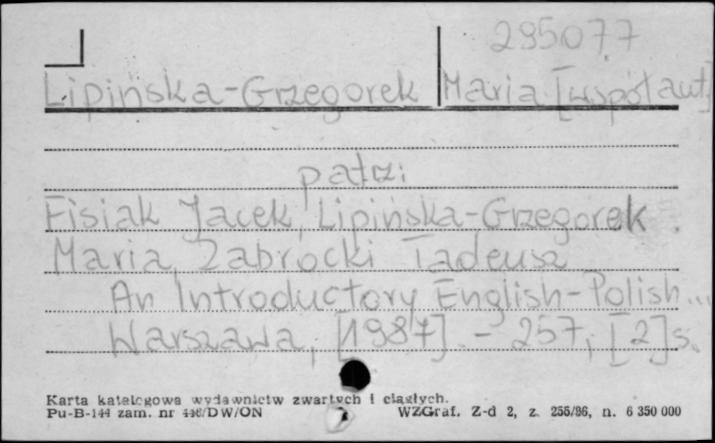 295077
Lipińska-Grzegorek Maria [współaut.]
patrz:
Fisiak Jacek, Lipińska-Grzegorek
Maria, Zabrocki Tadeusz
An Introductory English-Polish...
Warszawa, [1987]. - 257, [2] s.
Karta katalogowa wydawnictw zwartych i ciągłych.
Pu-B-144 zam. nr 446/DW/ON WZGraf. Z-d 2, z. 255/86, n. 6 350 000